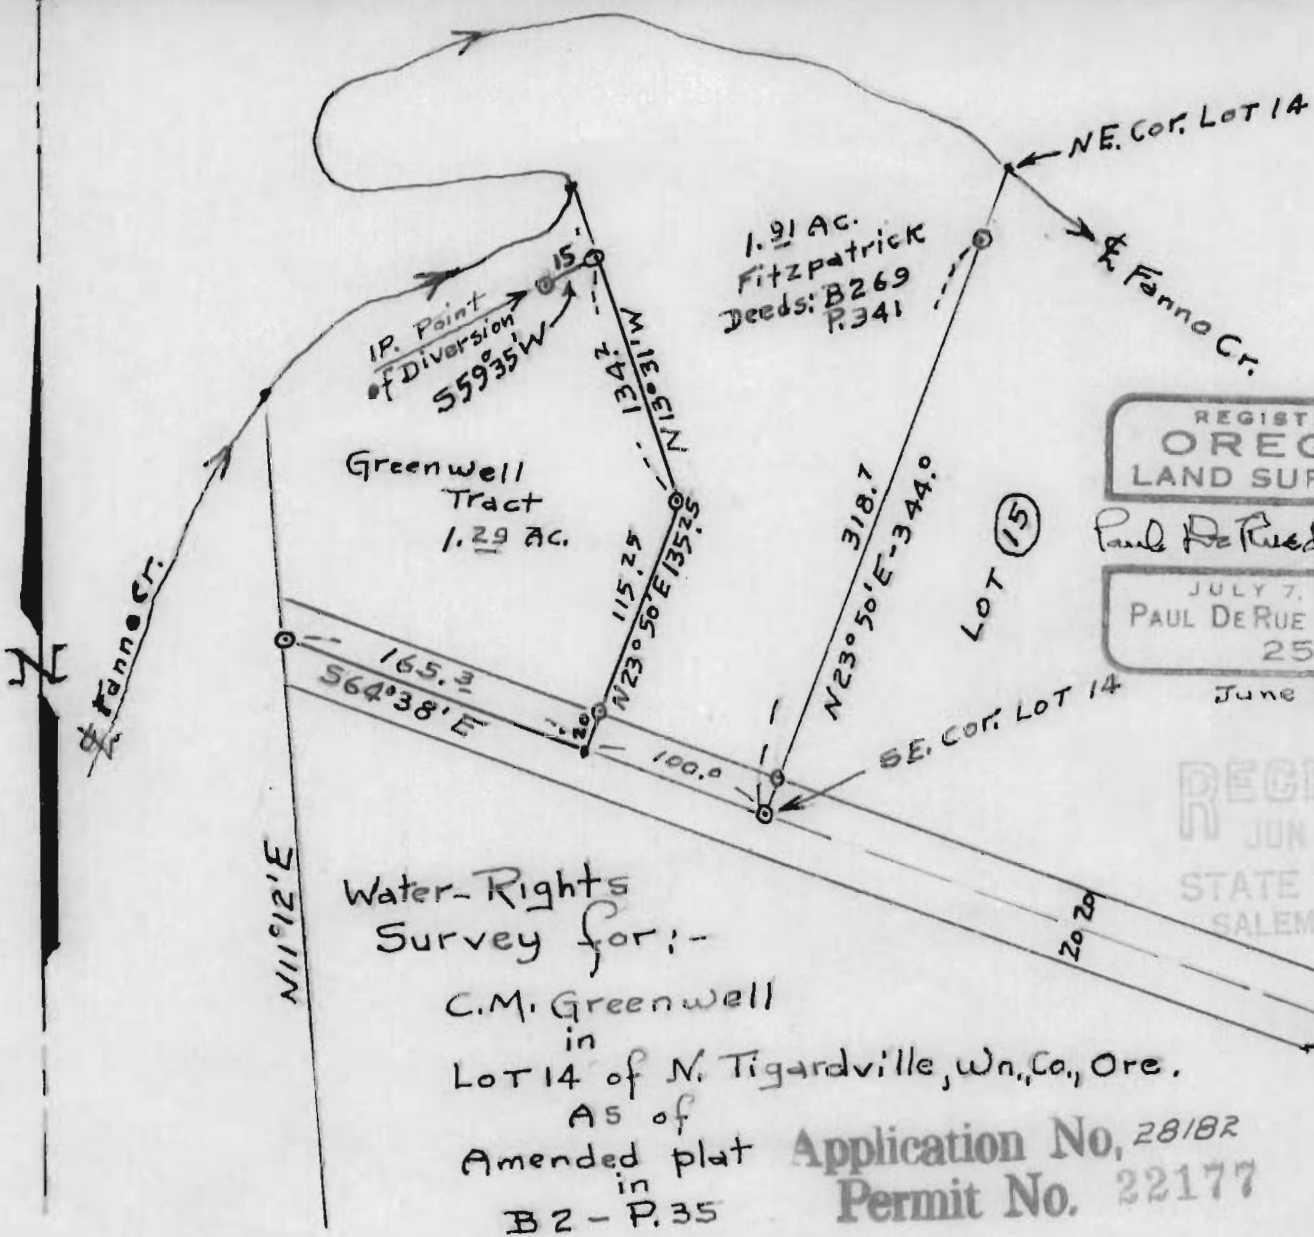 NE. Cor. LOT 14
1.91 Ac.
Fitzpatrick
Deeds: B269
P.341
℄ Fanno Cr.
15'
IP. Point
of Diversion
S59°35'W
N13°31'W
134.2
Greenwell
Tract
1.29 Ac.
115.25
N23°50'E 135.25
318.7
N23°50'E-344.0
LOT 15
REGIST
OREG
LAND SUR
JULY 7,
PAUL DERUE
25
June
℄ Fanno Cr.
N
165.3
S64°38'E
20
100.0
SE. Cor. LOT 14
20 20
N11°12'E
JUN
STATE
SALEM
Water-Rights
Survey for:-
C.M. Greenwell
in
LOT 14 of N. Tigardville, Wn., Co., Ore.
As of
Amended plat
in
B2-P.35
Application No. 28182
Permit No. 22177